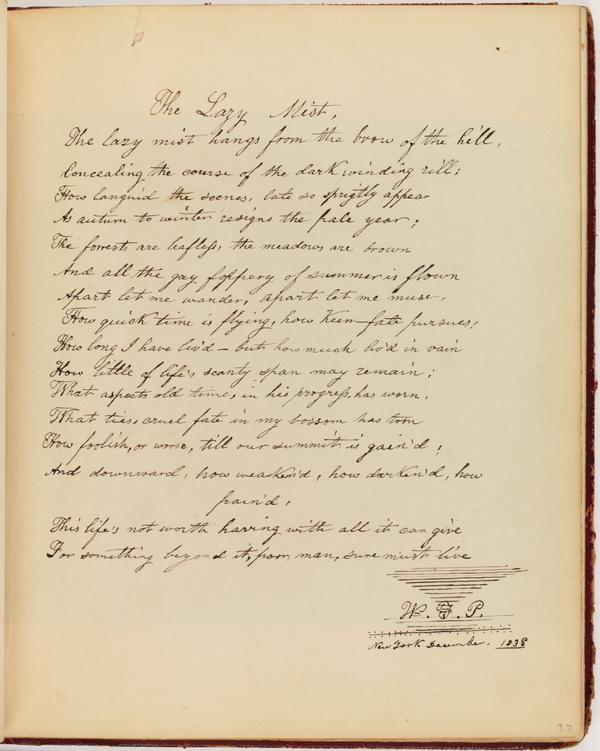 The Lazy Mist,
The lazy mist hangs from the brow of the hill,
Concealing the course of the dark winding rill;
How languid the scenes, late so sprigtly appear
As autum to winter resigns the pale year;
The forrests are leafless, the meadows are brown
And all the gay foppery of summer is flown
Apart let me wander, apart let me muse,
How quick time is flying, how keen fate pursues!
How long I have liv'd – but how much liv'd in vain
How little of life's scanty span may remain;
What aspects old time, in his progress, has worn,
What ties, cruel fate in my bossom has torn
How foolish, or worse, till our summit is gain'd;
And downward, how weaken'd, how darken'd, how
pain'd,
This life's not worth having with all it can give
For something beyond it, poor man, sure must live
W. F. P.
New York December. 1838
37